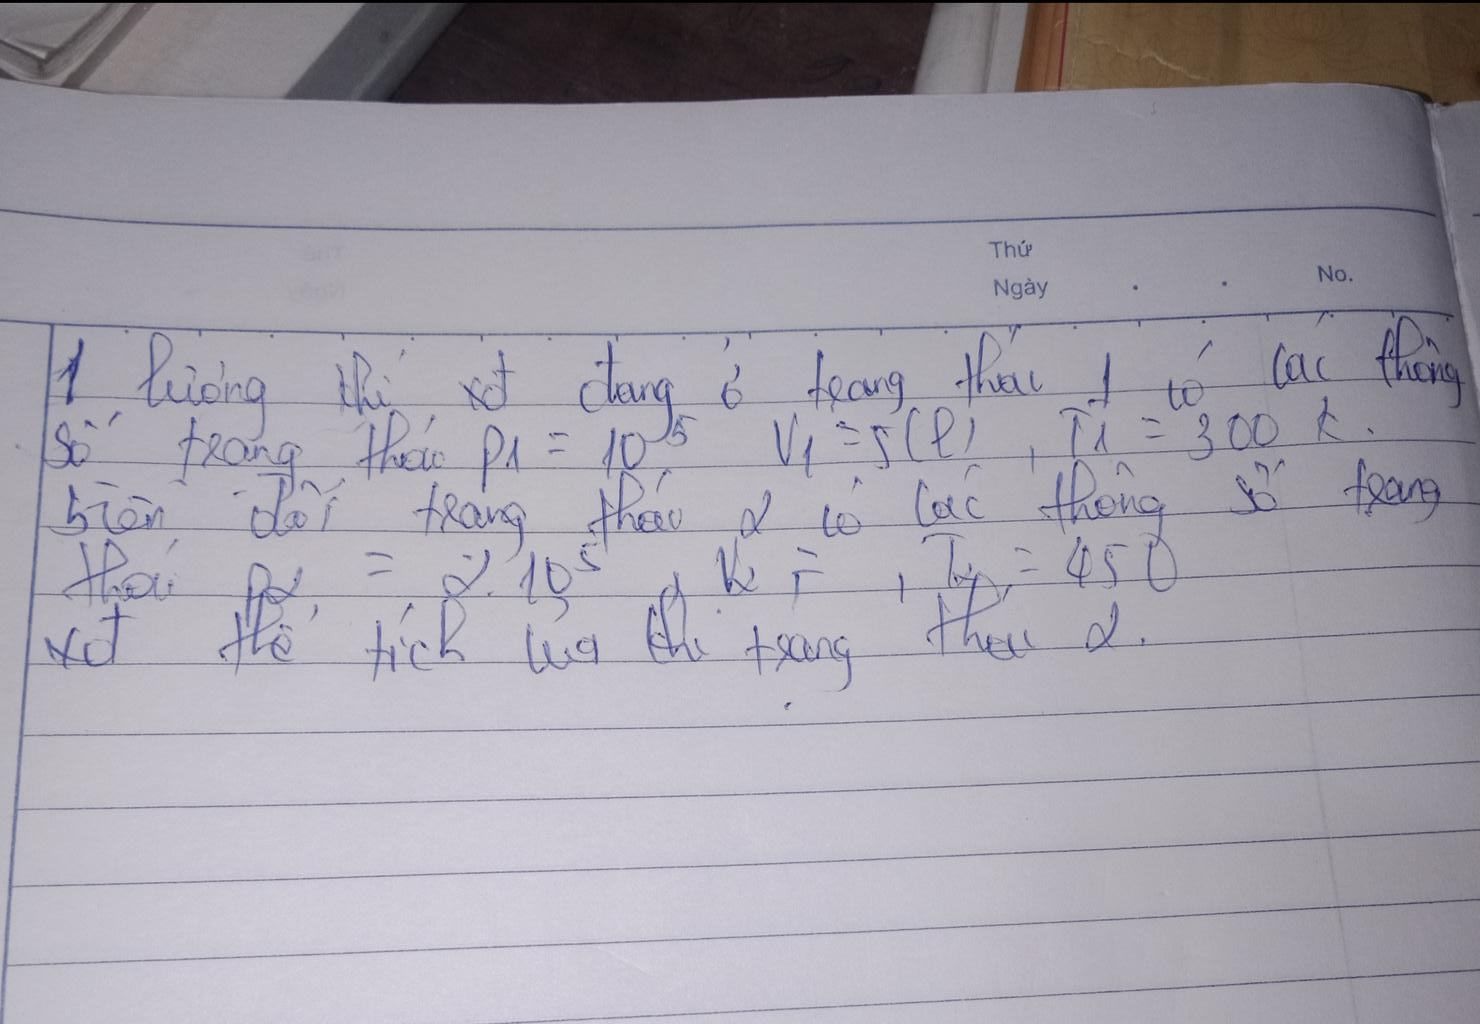 Thứ
Ngày . . No.
1 lượng khí xđ đang ở trạng thái 1 có các thông
số trạng thái p1 = 10^5 V1 = 5(l), T1 = 300 K.
biến đổi trạng thái 2 có các thông số trạng
thái p2 = 2.10^5, V2 = , T2 = 450
xđ thể tích của khí trạng thái 2.